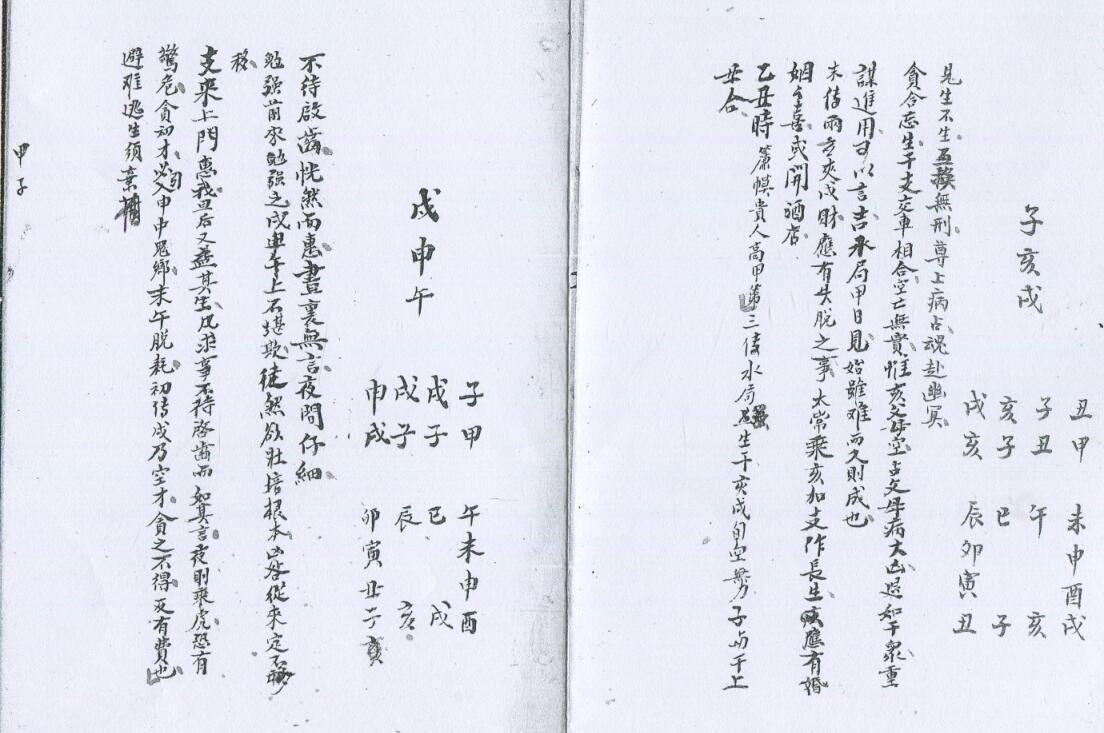 子亥戌
丑甲 未申酉戌
子丑 午 亥
亥子 巳 子
戌亥 辰卯寅丑
見生不生互換無刑尊上病占魂赴幽冥
貪合忘生干支六車相合空亡無實惟亥父母空占父母病大凶退知干衆重
謀進用甘以言吉承局甲日見始雖难而久則成也
末傳兩旁夾戌財應有失脫之事太常乘亥加支作長生應有婚
姻之喜或開酒店
乙丑時簾幙貴人高甲第三傳水局生干亥戌旬空無力子与干上
丑合
戌申午
子甲 午未申酉
戌子 巳 戌
戌子 辰 亥
申戌 卯寅丑子
不待啟齒恍然而惠晝裏無言夜間仔細
勉强前求勉强之戌申午上不堪欺徒然欲壯培根本凶咎從来定不
移
支来上門惠我旦后又益其生凡求事不待啓齒而如其言夜則乘虎恐有
驚危貪初才必入申中鬼鄉末午脫耗初傳戌乃空才貪之不得反有費也
避难逃生須棄舊
甲子